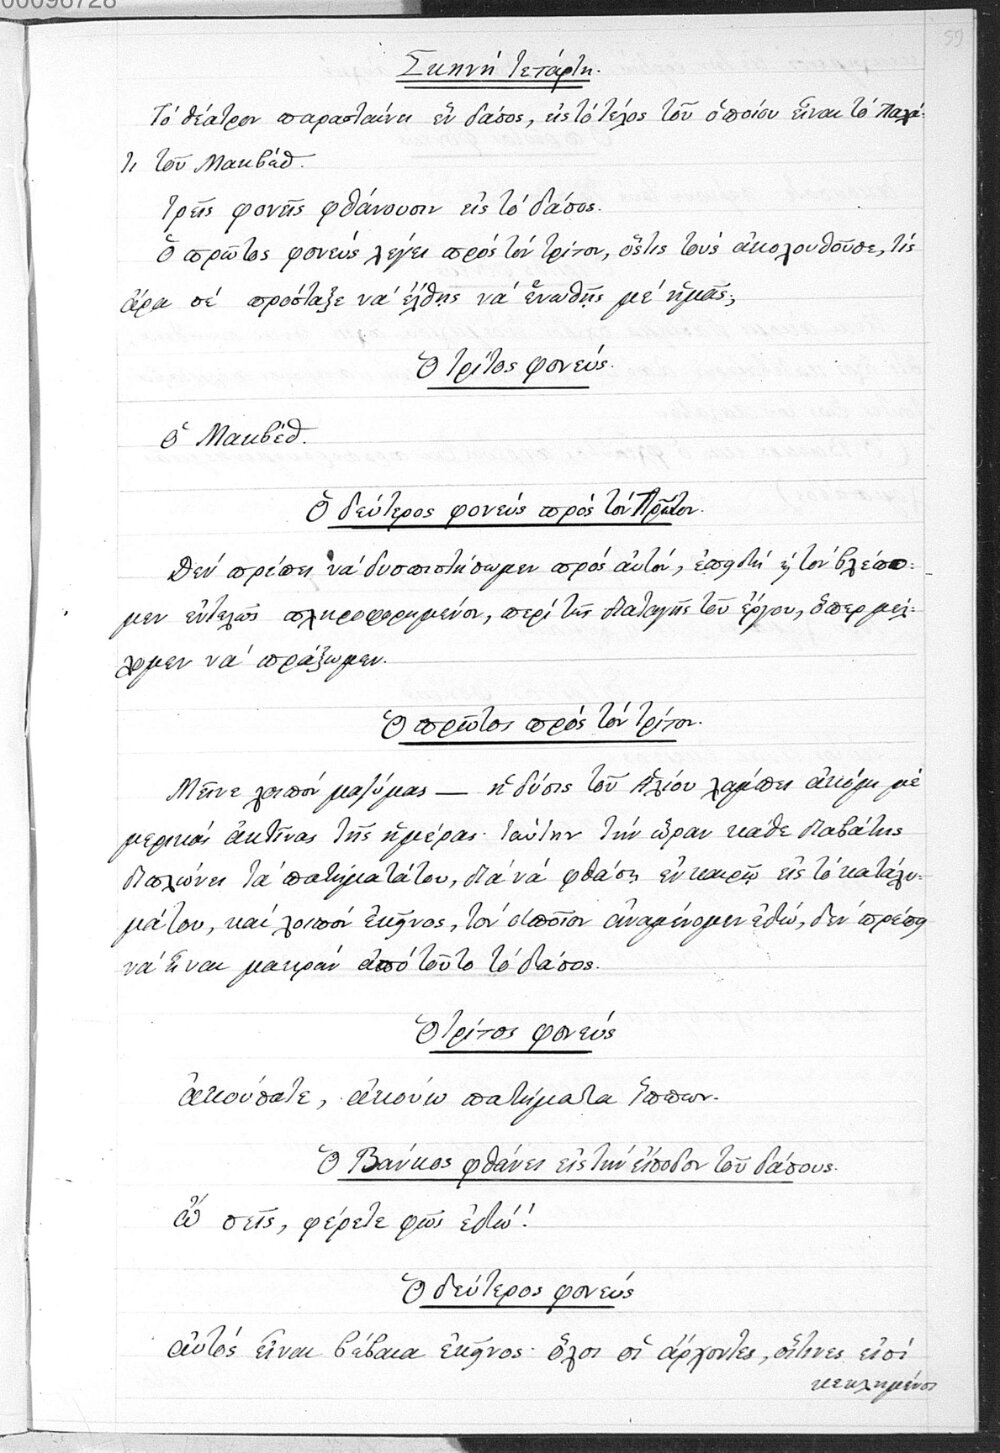 00096728
59
Σκηνή Τετάρτη.
Τό θέατρον παρασταίνει ἕν δάσος, εἰς τό τέλος τοῦ ὁποίου εἶναι τό Παλά-
τι τοῦ Μακβέθ.
Τρεῖς φονεῖς φθάνουσιν εἰς τό δάσος.
Ὁ πρῶτος φονεύς λέγει πρός τόν τρίτον, ὅστις τούς ἀκολουθοῦσε, τίς
ἄρα σέ πρόσταξε νά ἔλθῃς νά ἑνωθῇς μέ ἡμᾶς;
Ὁ τρίτος φονεύς.
Ὁ Μακβέθ.
Ὁ δεύτερος φονεύς πρός τόν Πρῶτον.
Δέν πρέπει νά δυσπιστήσωμεν πρός αὐτόν, ἐπειδή τόν βλέπο-
μεν ἐντελῶς πληροφορημένον, περί τῆς διαταγῆς τοῦ ἔργου, ὅπερ μέλ-
λομεν νά πράξωμεν.
Ὁ πρῶτος πρός τόν τρίτον.
Μεῖνε λοιπόν μαζύ μας — ἡ δύσις τοῦ ἡλίου λάμπει ἀκόμη μέ
μερικάς ἀκτῖνας τῆς ἡμέρας· ταύτην τήν ὥραν κάθε διαβάτης
διπλώνει τά πατήματά του, διά νά φθάσῃ ἐν καιρῷ εἰς τό κατάλυ-
μά του, καί λοιπόν ἐκεῖνος, τόν ὁποῖον ἀναμένομεν ἐδώ, δέν πρέπει
νά εἶναι μακράν ἀπό τοῦτο τό δάσος.
Ὁ τρίτος φονεύς
ἀκούσατε, ἀκούω πατήματα ἵππων.
Ὁ Βάνκος φθάνει εἰς τήν εἴσοδον τοῦ δάσους.
Ὤ σεῖς, φέρετε φῶς ἐδώ!
Ὁ δεύτερος φονεύς
αὐτός εἶναι βέβαια ἐκεῖνος· ὅλοι οἱ ἄρχοντες, οἵτινες εἰσί
κεκλημένοι